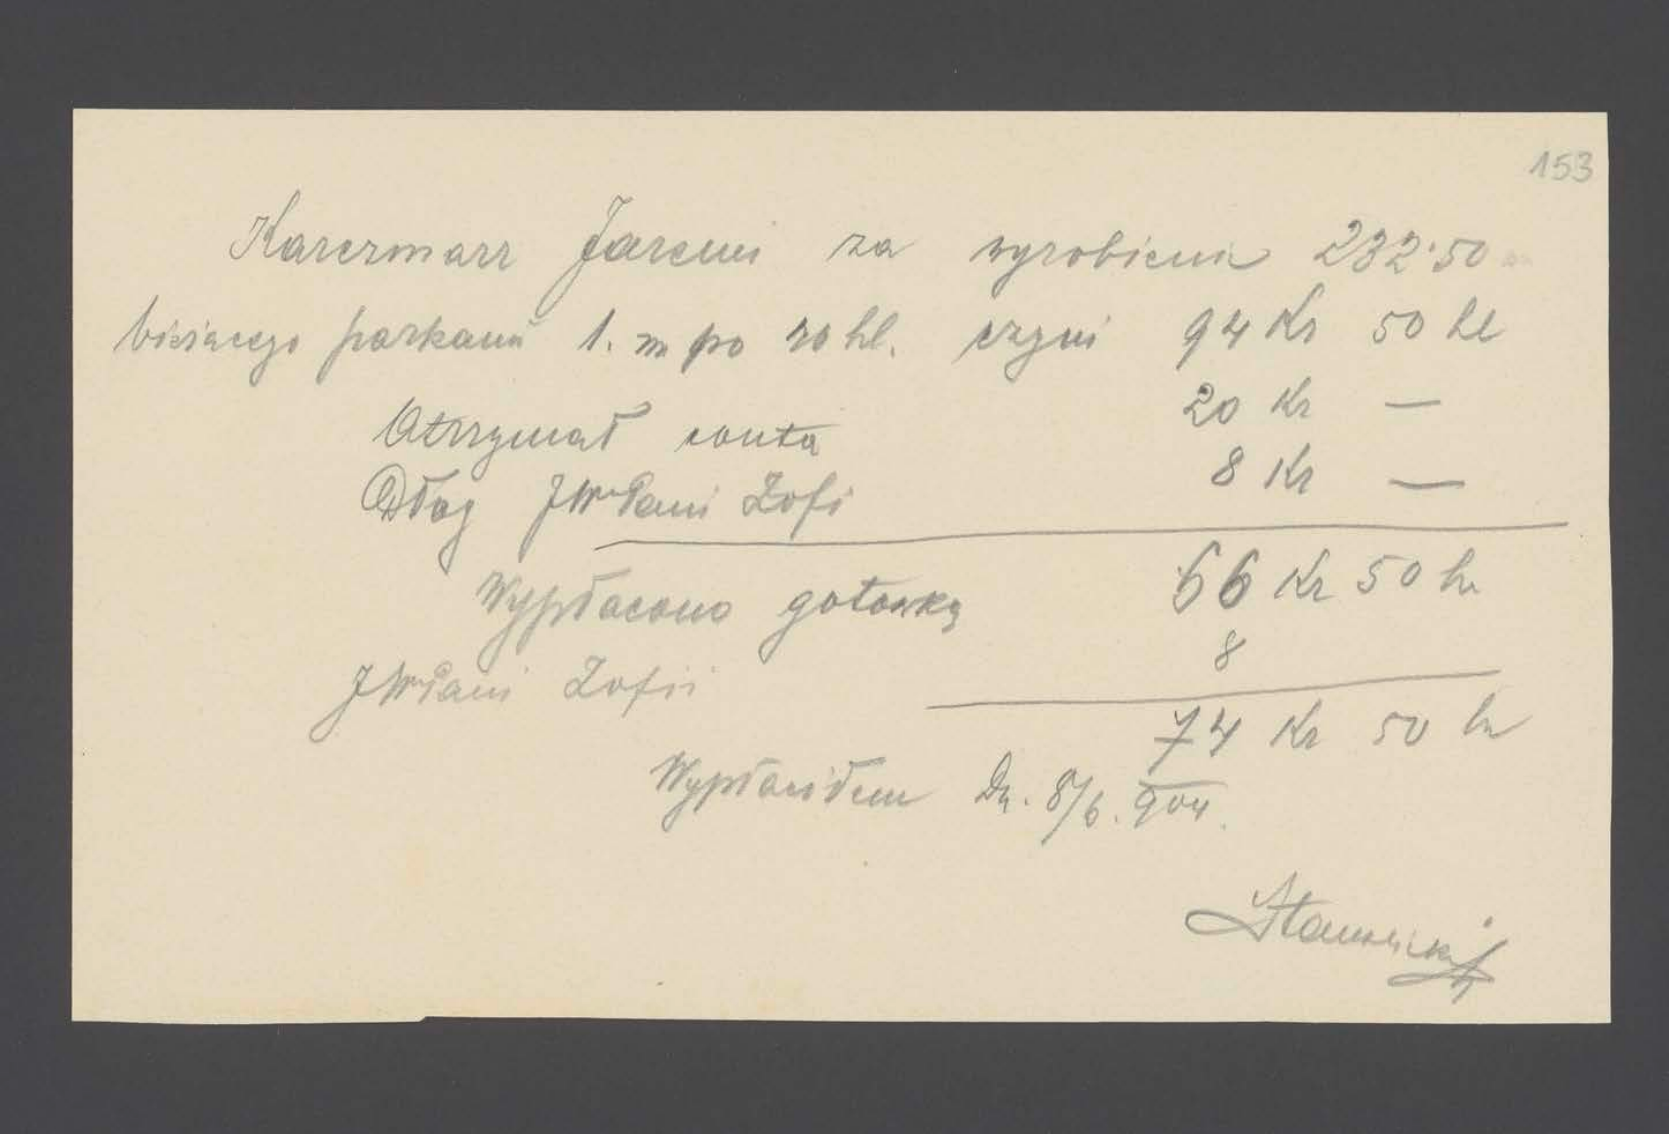 153
Karczmarz Jaremi za wyrobienie 232·50
bieżącego parkanu 1. m po hl. czyni 94 Kr 50 hl
Otrzymał conta 20 Kr —
Dług JWPani Zofi 8 Kr —
Wypłacono gotówką 66 Kr 50 h
8
JWPani Zofii
74 Kr 50 h
Wypłaciłem Dn. 8/6. 904.